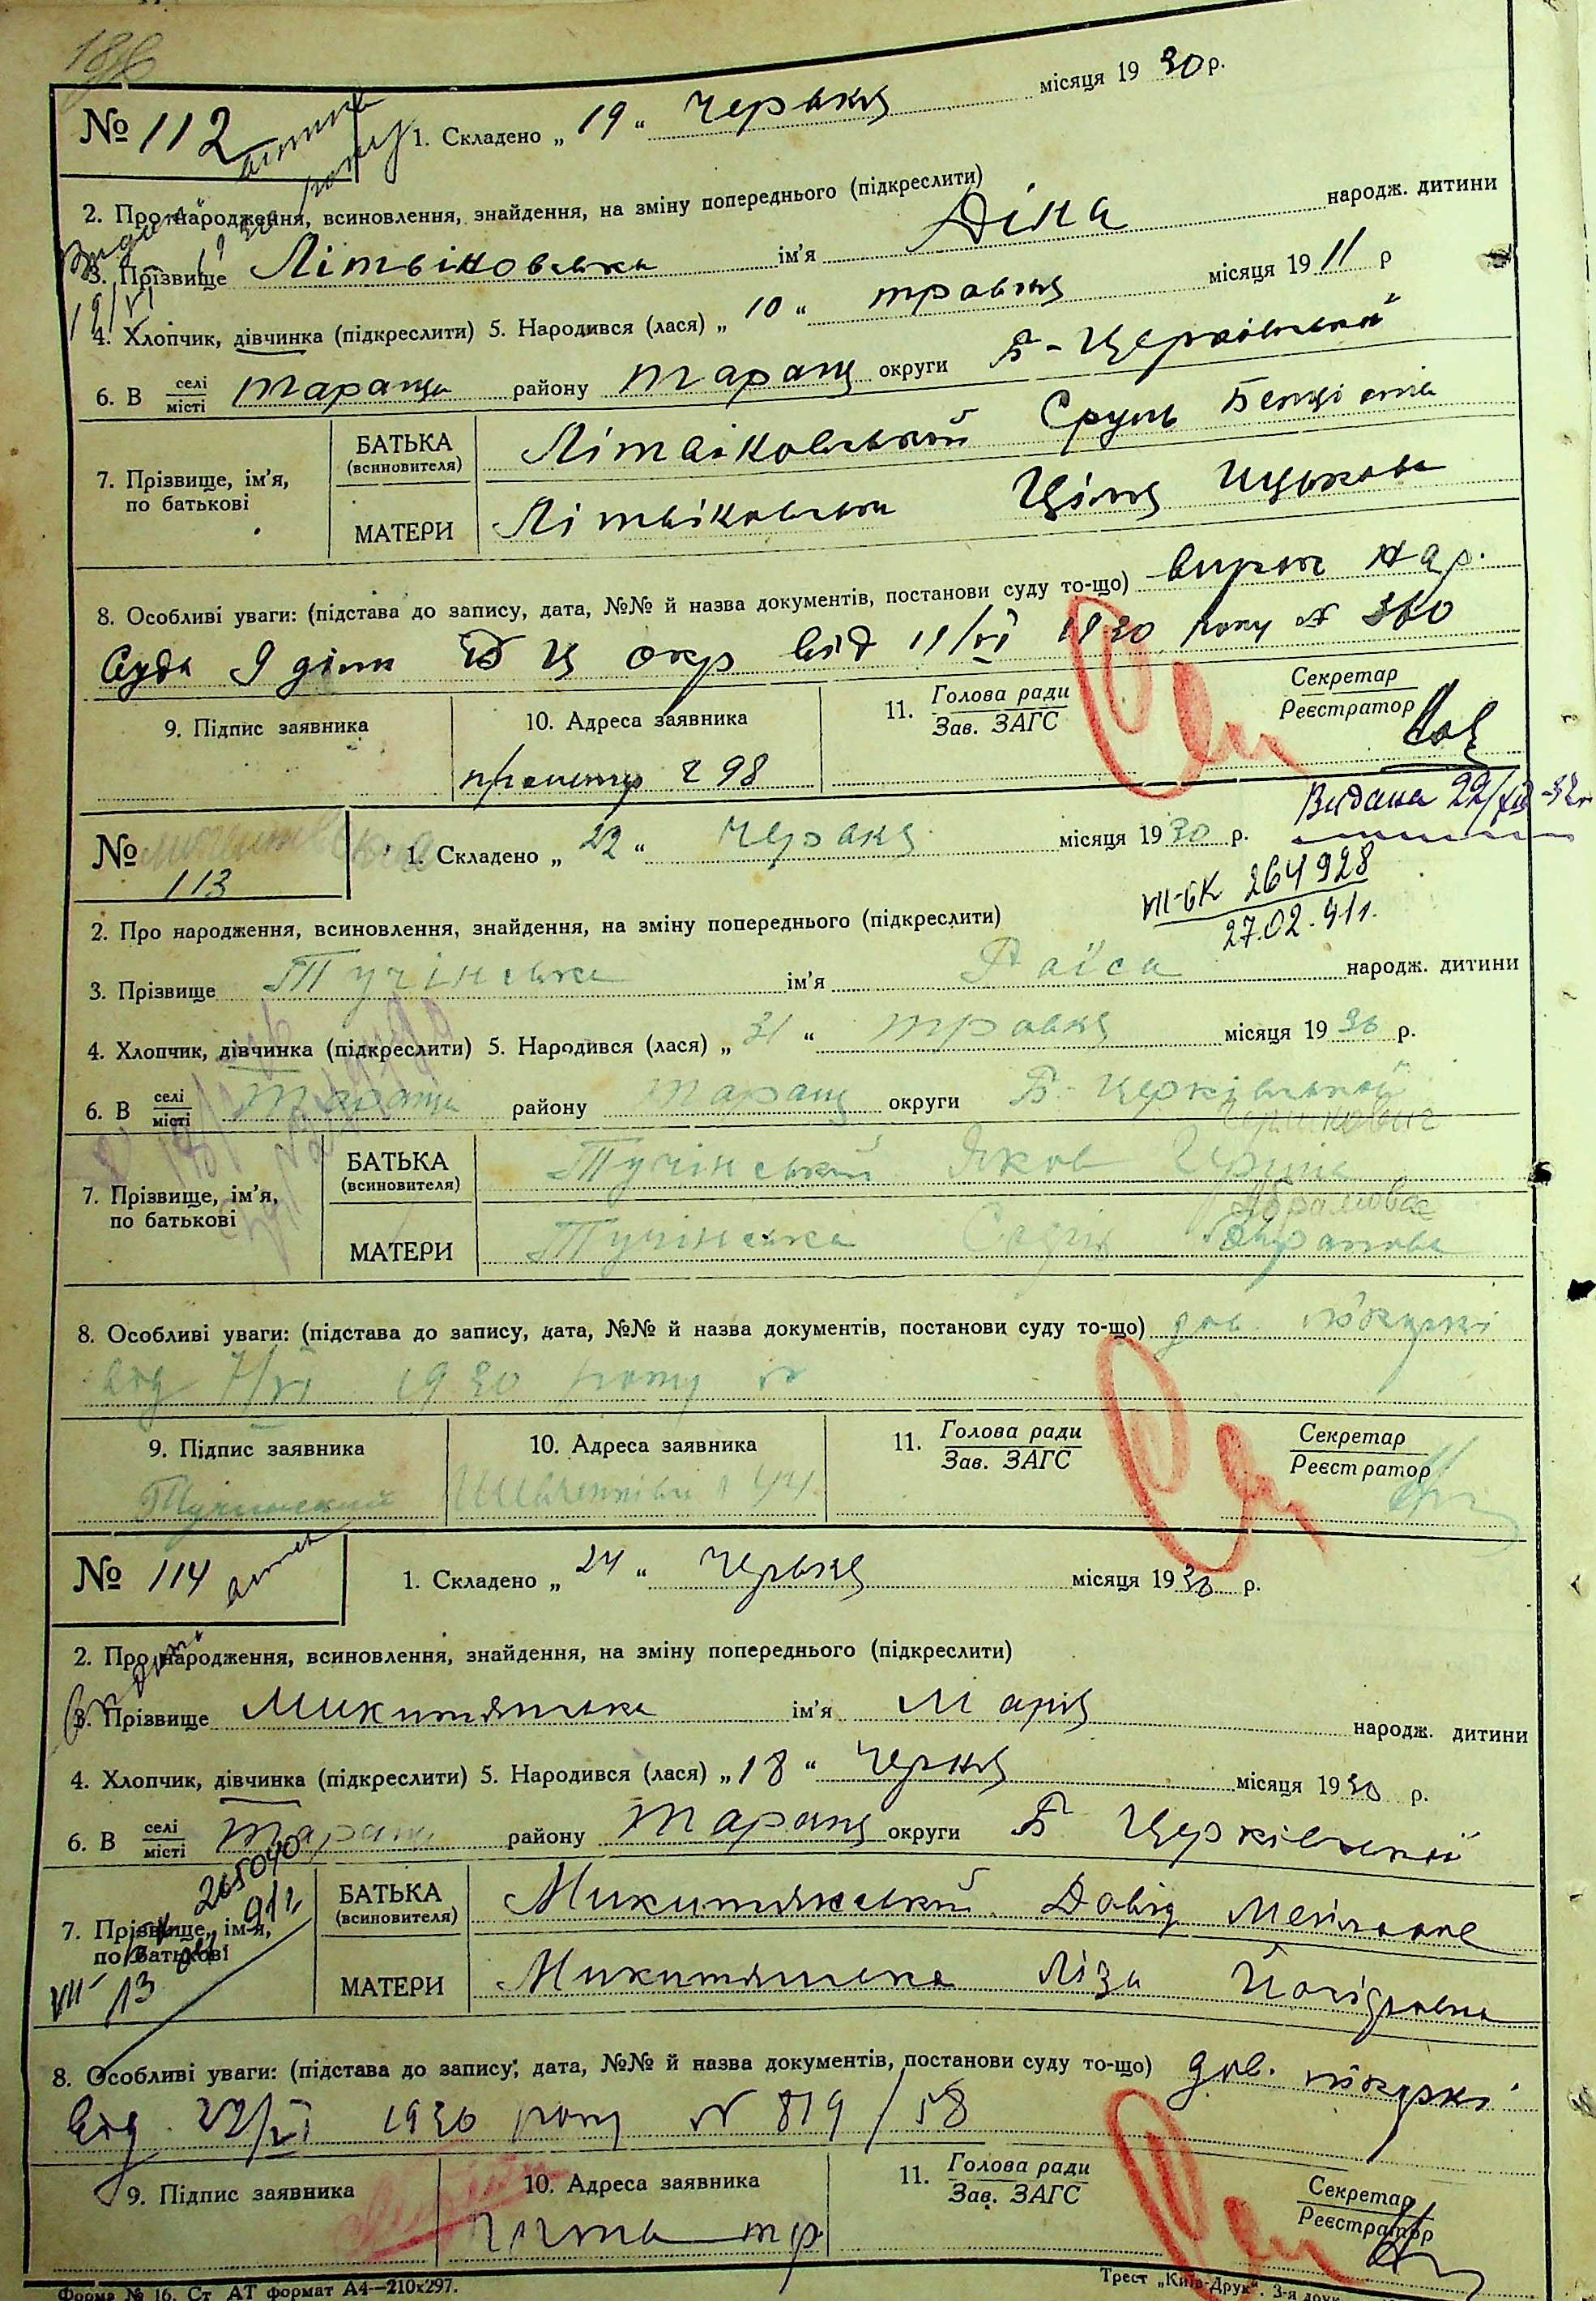 № 112
1. Складено „ 19 “ червня місяця 1930 р.
2. Про народження, всиновлення, знайдення, на зміну попереднього (підкреслити)
3. Прізвище Літвіновська ім'я Діна народж. дитини
4. Хлопчик, дівчинка (підкреслити) 5. Народився (лася) „ 10 “ травня місяця 1911 р
6. В селі місті Тараща району Таращ округи Б-Церківської
7. Прізвище, ім'я, по батькові
БАТЬКА (всиновителя) Літвіновський Сруль
МАТЕРИ Літвіновська Ціля Ицькова
8. Особливі уваги: (підстава до запису, дата, №№ й назва документів, постанови суду то-що) вирок Нар.
Суда 9 дільн БЦ окр від 11/VI 1930 року № 360
9. Підпис заявника
10. Адреса заявника
ч 98
11. Голова ради Зав. ЗАГС
Секретар Реєстратор
Видана 22/
№ 113
1. Складено „ 22 “ червня місяця 1930 р.
VII-БК 264928
27.02.41г.
2. Про народження, всиновлення, знайдення, на зміну попереднього (підкреслити)
3. Прізвище Тучінська ім'я Раїса народж. дитини
4. Хлопчик, дівчинка (підкреслити) 5. Народився (лася) „ 31 “ травня місяця 1930 р.
6. В селі місті Тараща району Таращ округи Б-Церківської
7. Прізвище, ім'я, по батькові
БАТЬКА (всиновителя) Тучінський Яков
МАТЕРИ Тучінська Софія Абрамова
8. Особливі уваги: (підстава до запису, дата, №№ й назва документів, постанови суду то-що) дов.
від 7/VI 1930 року №
9. Підпис заявника
Тучинский
10. Адреса заявника
44
11. Голова ради Зав. ЗАГС
Секретар Реєстратор
№ 114
1. Складено „ 24 “ червня місяця 1930 р.
2. Про народження, всиновлення, знайдення, на зміну попереднього (підкреслити)
3. Прізвище Микитянська ім'я Марія народж. дитини
4. Хлопчик, дівчинка (підкреслити) 5. Народився (лася) „ 18 “ черня місяця 1930 р.
6. В селі місті Тараща району Таращ округи Б Церківської
7. Прізвище, ім'я, по батькові
БАТЬКА (всиновителя) Микитянський Давід
МАТЕРИ Микитянська Ліза
8. Особливі уваги: (підстава до запису, дата, №№ й назва документів, постанови суду то-що) дов.
від 22/VI 1930 року № 819/58
9. Підпис заявника
10. Адреса заявника
11. Голова ради Зав. ЗАГС
Секретар Реєстратор
Форма № 16. Ст АТ формат А4—210х297.
Трест „Київ-Друк“. 3-я друк